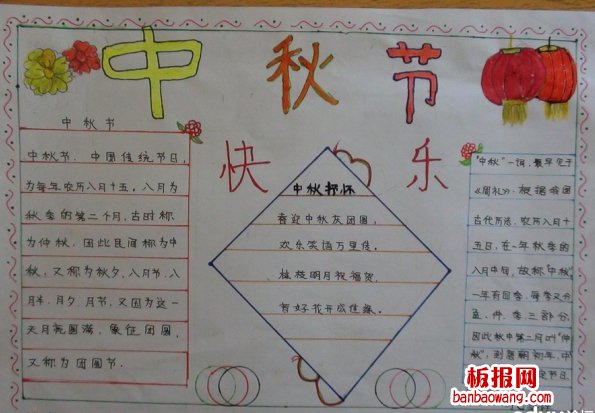 中秋节
快乐
中秋节
中秋节,中国传统节日,
为每年农历八月十五。八月为
秋季的第二个月,古时称
为仲秋,因此民间称为中
秋,又称为秋夕,八月节,八
月半,月夕,月节,又因为这一
天月亮圆满,象征团圆,
又称为团圆节。
中秋抒怀
喜迎中秋庆团圆,
欢乐笑语万里传。
桂枝明月祝福贺,
皆好花开成佳缘。
"中秋"一词,最早见于
《周礼》。根据我国
古代历法,农历八月十
五日,在一年秋季的
八月中旬,故称"中秋"
一年有四季,每季又分
孟、仲、季三部分,
因此秋中第二月叫"仲
秋",到唐朝初年,中
节日
板报网
banbaowang.com